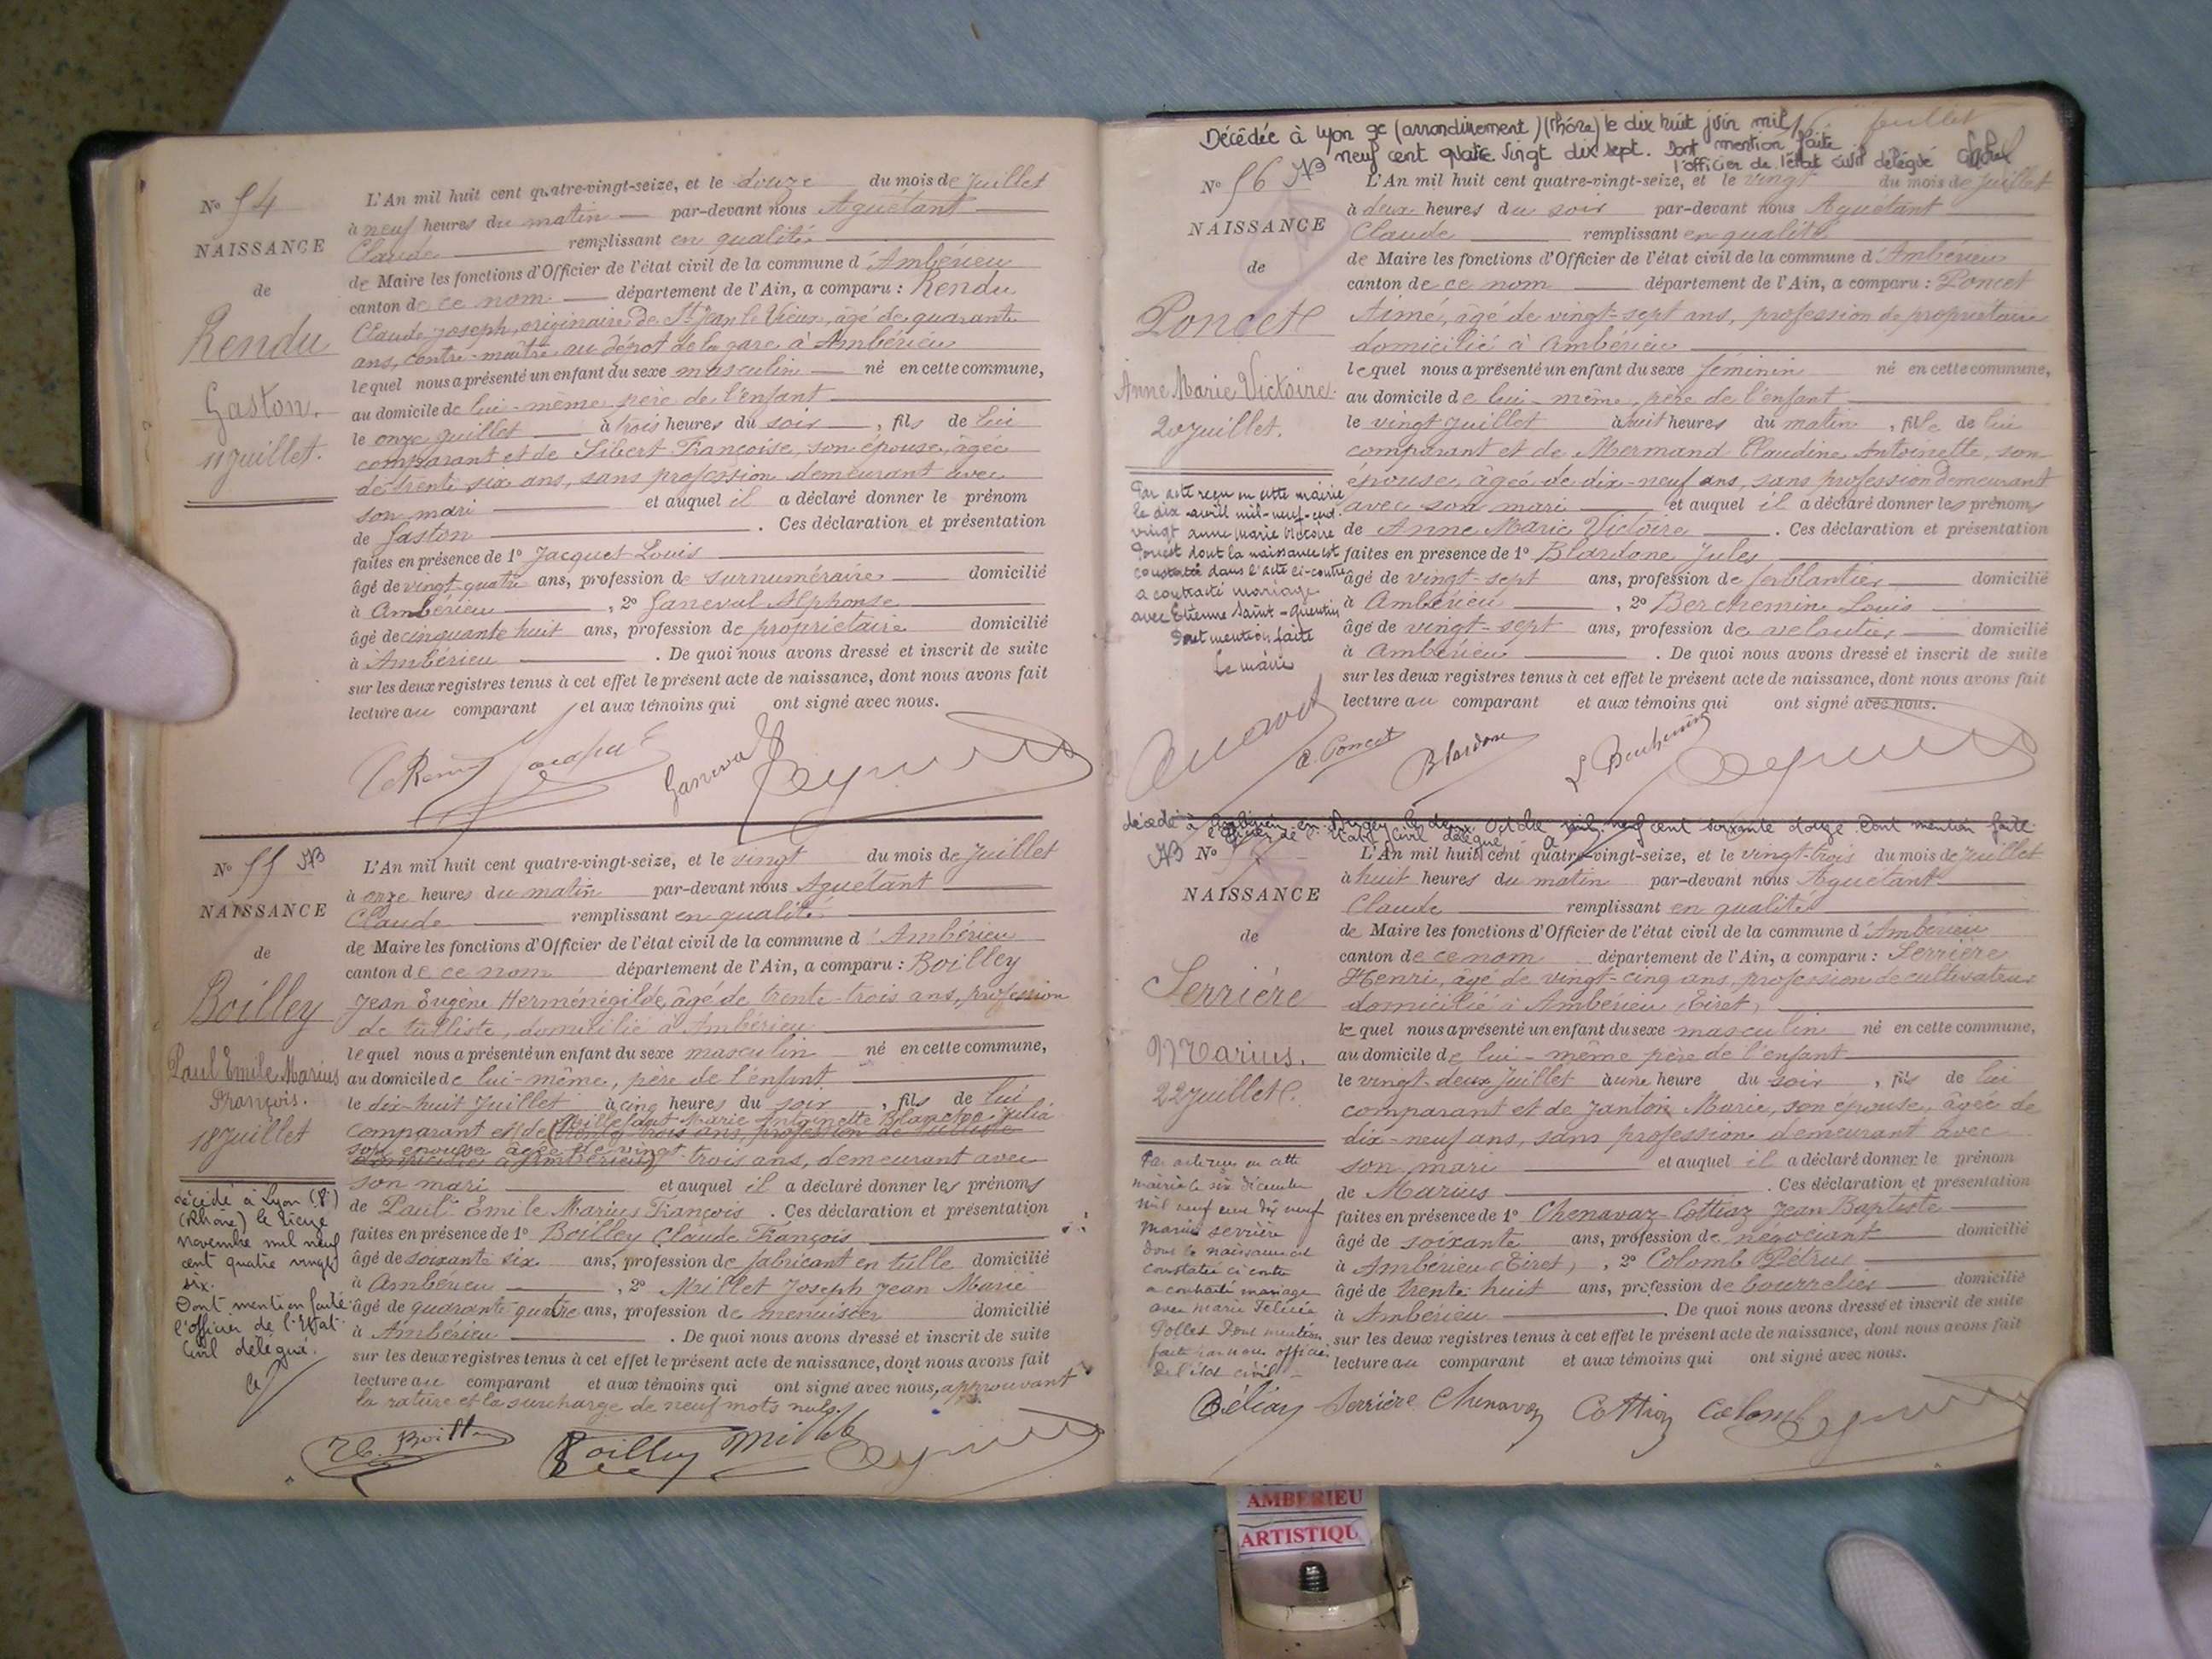 N° 54
NAISSANCE
de
Rendu
Gaston.
11 juillet.
L'An mil huit cent quatre-vingt-seize, et le douze du mois de Juillet
à neuf heures du matin par-devant nous Aguétant
Claude remplissant en qualité
de Maire les fonctions d'Officier de l'état civil de la commune d'Ambérieu
canton de ce nom département de l'Ain, a comparu : Rendu
Claude Joseph, originaire de St Jean le Vieux, âgé de quarante
ans, contre-maître au dépôt de la gare à Ambérieu
lequel nous a présenté un enfant du sexe masculin né en cette commune,
au domicile de lui-même père de l'enfant
le onze juillet à trois heures du soir, fils de lui
comparant et de Sibert Françoise, son épouse, âgée
de trente six ans, sans profession demeurant avec
son mari et auquel il a déclaré donner le prénom
de Gaston. Ces déclaration et présentation
faites en présence de 1° Jacquet Louis
âgé de vingt-quatre ans, profession de surnuméraire domicilié
à Ambérieu, 2° Ganeval Alphonse
âgé de cinquante huit ans, profession de propriétaire domicilié
à Ambérieu. De quoi nous avons dressé et inscrit de suite
sur les deux registres tenus à cet effet le présent acte de naissance, dont nous avons fait
lecture au comparant et aux témoins qui ont signé avec nous.
Ganeval
N° 55 NB
NAISSANCE
de
Boilley
Paul Emile Marius
François.
18 Juillet
décédé à Lyon (8e)
(Rhône) le treize
novembre mil neuf
cent quatre vingt
six.
Dont mention faite
l'officier de l'Etat
Civil délégué.
L'An mil huit cent quatre-vingt-seize, et le vingt du mois de Juillet
à onze heures du matin par-devant nous Aguétant
Claude remplissant en qualité
de Maire les fonctions d'Officier de l'état civil de la commune d'Ambérieu
canton de ce nom département de l'Ain, a comparu : Boilley
Jean Eugène Herménégilde, âgé de trente-trois ans, profession
de tulliste, domicilié à Ambérieu
lequel nous a présenté un enfant du sexe masculin né en cette commune,
au domicile de lui-même, père de l'enfant
le dix-huit Juillet à cinq heures du soir, fils de lui
Marie Antoinette Blanche Julia
comparant et de trente trois ans, profession de tulliste
son épouse âgée de vingt
domicilié à Ambérieu trois ans, demeurant avec
son mari et auquel il a déclaré donner les prénoms
de Paul Emile Marius François. Ces déclaration et présentation
faites en présence de 1° Boilley Claude François
âgé de soixante six ans, profession de fabricant en tulle domicilié
à Ambérieu, 2° Millet Joseph Jean Marie
âgé de quarante quatre ans, profession de menuisier domicilié
à Ambérieu. De quoi nous avons dressé et inscrit de suite
sur les deux registres tenus à cet effet le présent acte de naissance, dont nous avons fait
lecture au comparant et aux témoins qui ont signé avec nous, approuvant
la rature et la surcharge de neuf mots nuls.
Boilley Millet
Décédée à Lyon 9e (arrondissement) (Rhône) le dix huit juin mil
neuf cent quatre vingt dix sept. Dont mention faite
l'officier de l'état civil délégué
juillet
N° 56 NB
NAISSANCE
de
Poncet
Anne Marie Victoire.
20 juillet.
Par acte reçu en cette mairie
le dix avril mil-neuf-cent
vingt Anne Marie Victoire
Poncet dont la naissance est
constatée dans l'acte ci-contre
a contracté mariage
avec Etienne Saint-Quentin
Dont mention faite
Le maire
L'An mil huit cent quatre-vingt-seize, et le vingt du mois de Juillet
à deux heures du soir par-devant nous Aguétant
Claude remplissant en qualité
de Maire les fonctions d'Officier de l'état civil de la commune d'Ambérieu
canton de ce nom département de l'Ain, a comparu : Poncet
Aimé, âgé de vingt-sept ans, profession de propriétaire
domicilié à Ambérieu
lequel nous a présenté un enfant du sexe féminin né en cette commune,
au domicile de lui-même, père de l'enfant
le vingt Juillet à huit heures du matin, fille de lui
comparant et de Mermand Claudine Antoinette, son
épouse, âgée de dix-neuf ans, sans profession demeurant
avec son mari et auquel il a déclaré donner les prénoms
de Anne Marie Victoire. Ces déclaration et présentation
faites en présence de 1° Blardone Jules
âgé de vingt-sept ans, profession de ferblantier domicilié
à Ambérieu, 2° Berchemin Louis
âgé de vingt-sept ans, profession de veloutier domicilié
à Ambérieu. De quoi nous avons dressé et inscrit de suite
sur les deux registres tenus à cet effet le présent acte de naissance, dont nous avons fait
lecture au comparant et aux témoins qui ont signé avec nous.
A Poncet Blardone L Berchemin
décédé à Ambérieu en Bugey le deux Octobre mil neuf cent soixante douze. Dont mention faite
l'Officier de l'Etat Civil délégué
NB N°
NAISSANCE
de
Serrière
Marius.
22 juillet.
Par acte reçu en cette
mairie le six décembre
mil neuf cent dix neuf
Marius Serrière
dont la naissance est
constatée ci contre
a contracté mariage
avec Marie Félicie
Polles Dont mention
faite par nous officier
de l'état civil
L'An mil huit cent quatre-vingt-seize, et le vingt-trois du mois de Juillet
à huit heures du matin par-devant nous Aguétant
Claude remplissant en qualité
de Maire les fonctions d'Officier de l'état civil de la commune d'Ambérieu
canton de ce nom département de l'Ain, a comparu : Serrière
Henri, âgé de vingt-cinq ans, profession de cultivateur
domicilié à Ambérieu (Tiret)
lequel nous a présenté un enfant du sexe masculin né en cette commune,
au domicile de lui-même père de l'enfant
le vingt-deux Juillet à une heure du soir, fils de lui
comparant et de Janton Marie, son épouse, âgée de
dix-neuf ans, sans profession demeurant avec
son mari et auquel il a déclaré donner le prénom
de Marius. Ces déclaration et présentation
faites en présence de 1° Chenavaz-Cottiaz Jean Baptiste
âgé de soixante ans, profession de négociant domicilié
à Ambérieu (Tiret), 2° Colomb Pétrus
âgé de trente-huit ans, profession de bourrelier domicilié
à Ambérieu. De quoi nous avons dressé et inscrit de suite
sur les deux registres tenus à cet effet le présent acte de naissance, dont nous avons fait
lecture au comparant et aux témoins qui ont signé avec nous.
Serrière Chenavaz Colomb
AMBERIEU
ARTISTIQU